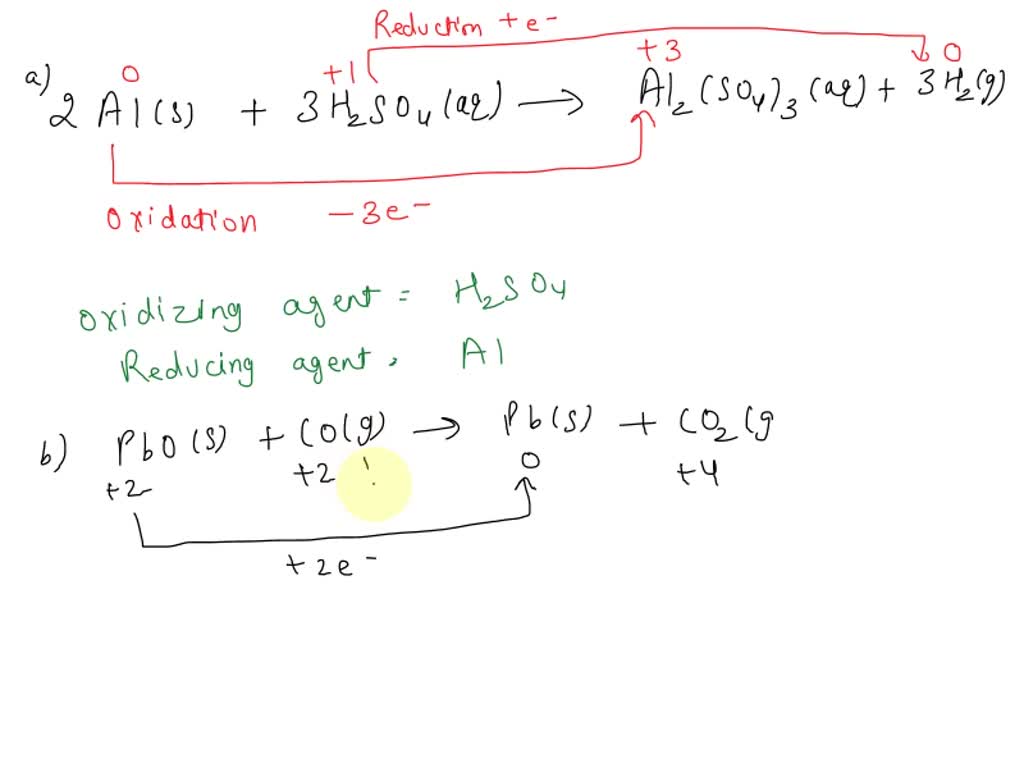 Reduction +e-
0 +1 +3 0
a) 2 Al(s) + 3H2SO4(aq) → Al2(SO4)3(aq) + 3H2(g)
Oxidation -3e-
Oxidizing agent = H2SO4
Reducing agent. Al
b) PbO(s) + CO(g) → Pb(s) + CO2(g
+2 +2 0 +4
+2e-